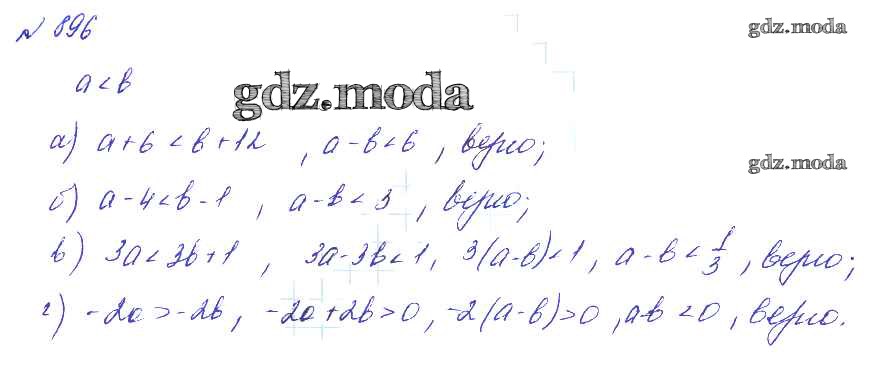 № 896
gdz.moda
a < b
gdz.moda
а) a + 6 < b + 12, a - b < 6, верно;
gdz.moda
б) a - 4 < b - 1, a - b < 3, верно;
в) 3a < 3b + 1, 3a - 3b < 1, 3(a - b) < 1, a - b < 1/3, верно;
г) -2a > -2b, -2a + 2b > 0, -2(a - b) > 0, a - b < 0, верно.